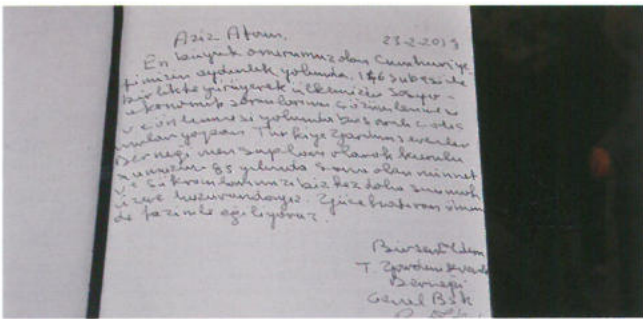 Aziz Atam, 23-2-2019
En büyük onurumuz olan Cumhuriye
timizin aydınlık yolunda, 146 şubesi ile
birlikte yürüyerek ülkemizin sosyo-
ekonomik sorunlarının çözümlenmesi
ve önlenmesi yolunda başarılı çalış
maları yapan Türkiye Yardımsevenler
Derneği mensupları olarak kuruluşu
muzun yılında sana olan minnet
ve şükranlarımızı bir kez daha sunmak
üzere huzurundayız. Yüce hatıran önün
de tazimle eğiliyoruz.
T. Yardımsevenler
Derneği
Genel Bşk